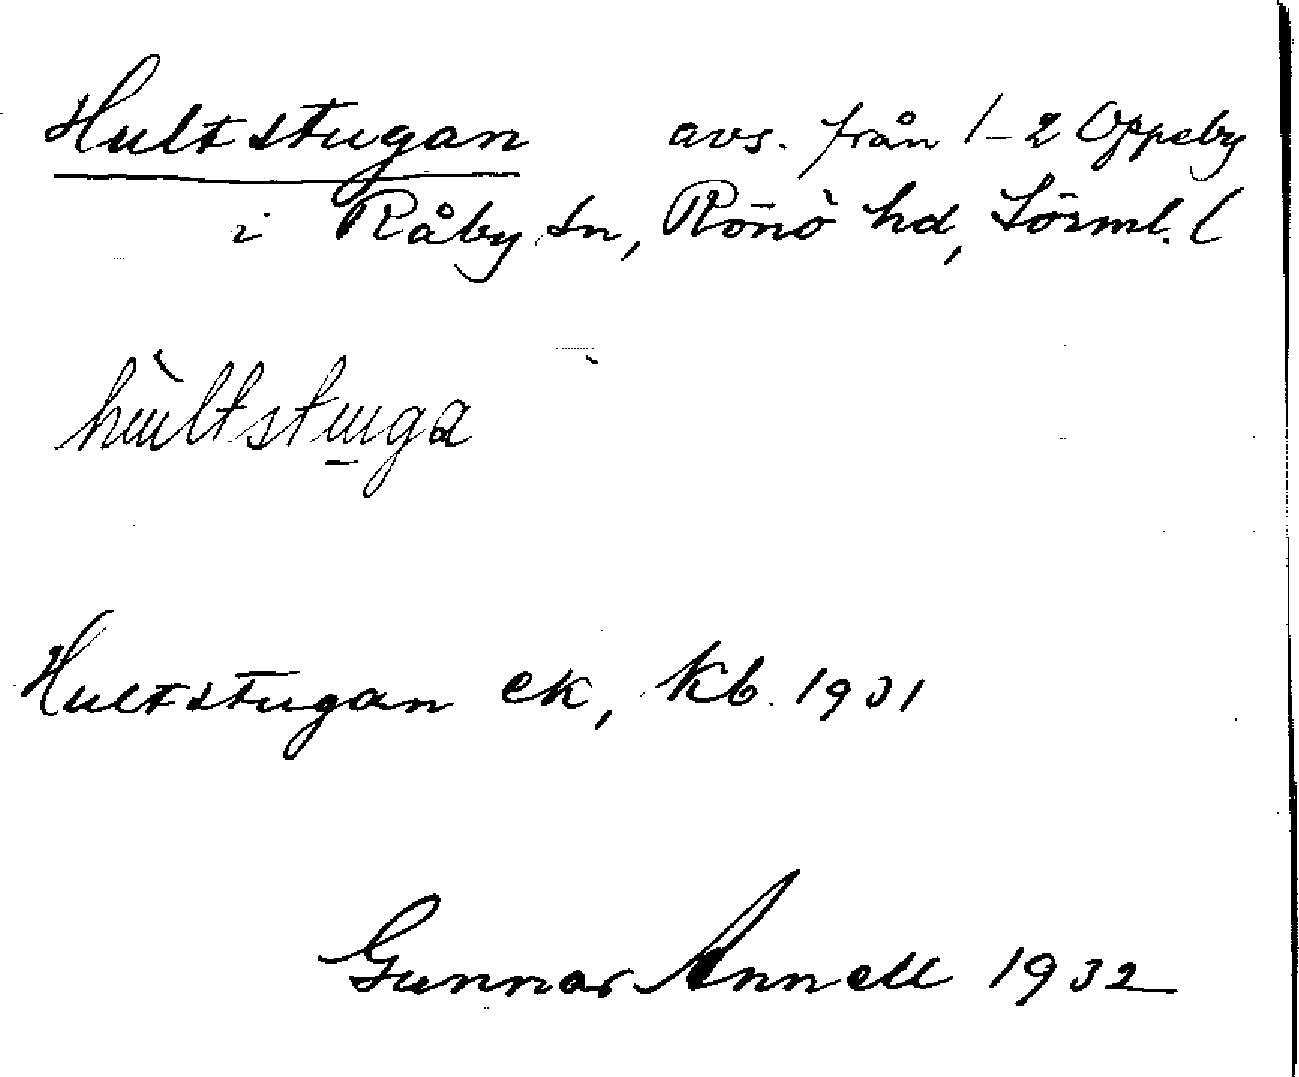 Hultstugan avs. från 1-2 Oppeby
i Råby sn, Rönö hd, Sörml. (
hùltstuga
Hultstugan ek, Kb. 1931
Gunnar Annell 1932